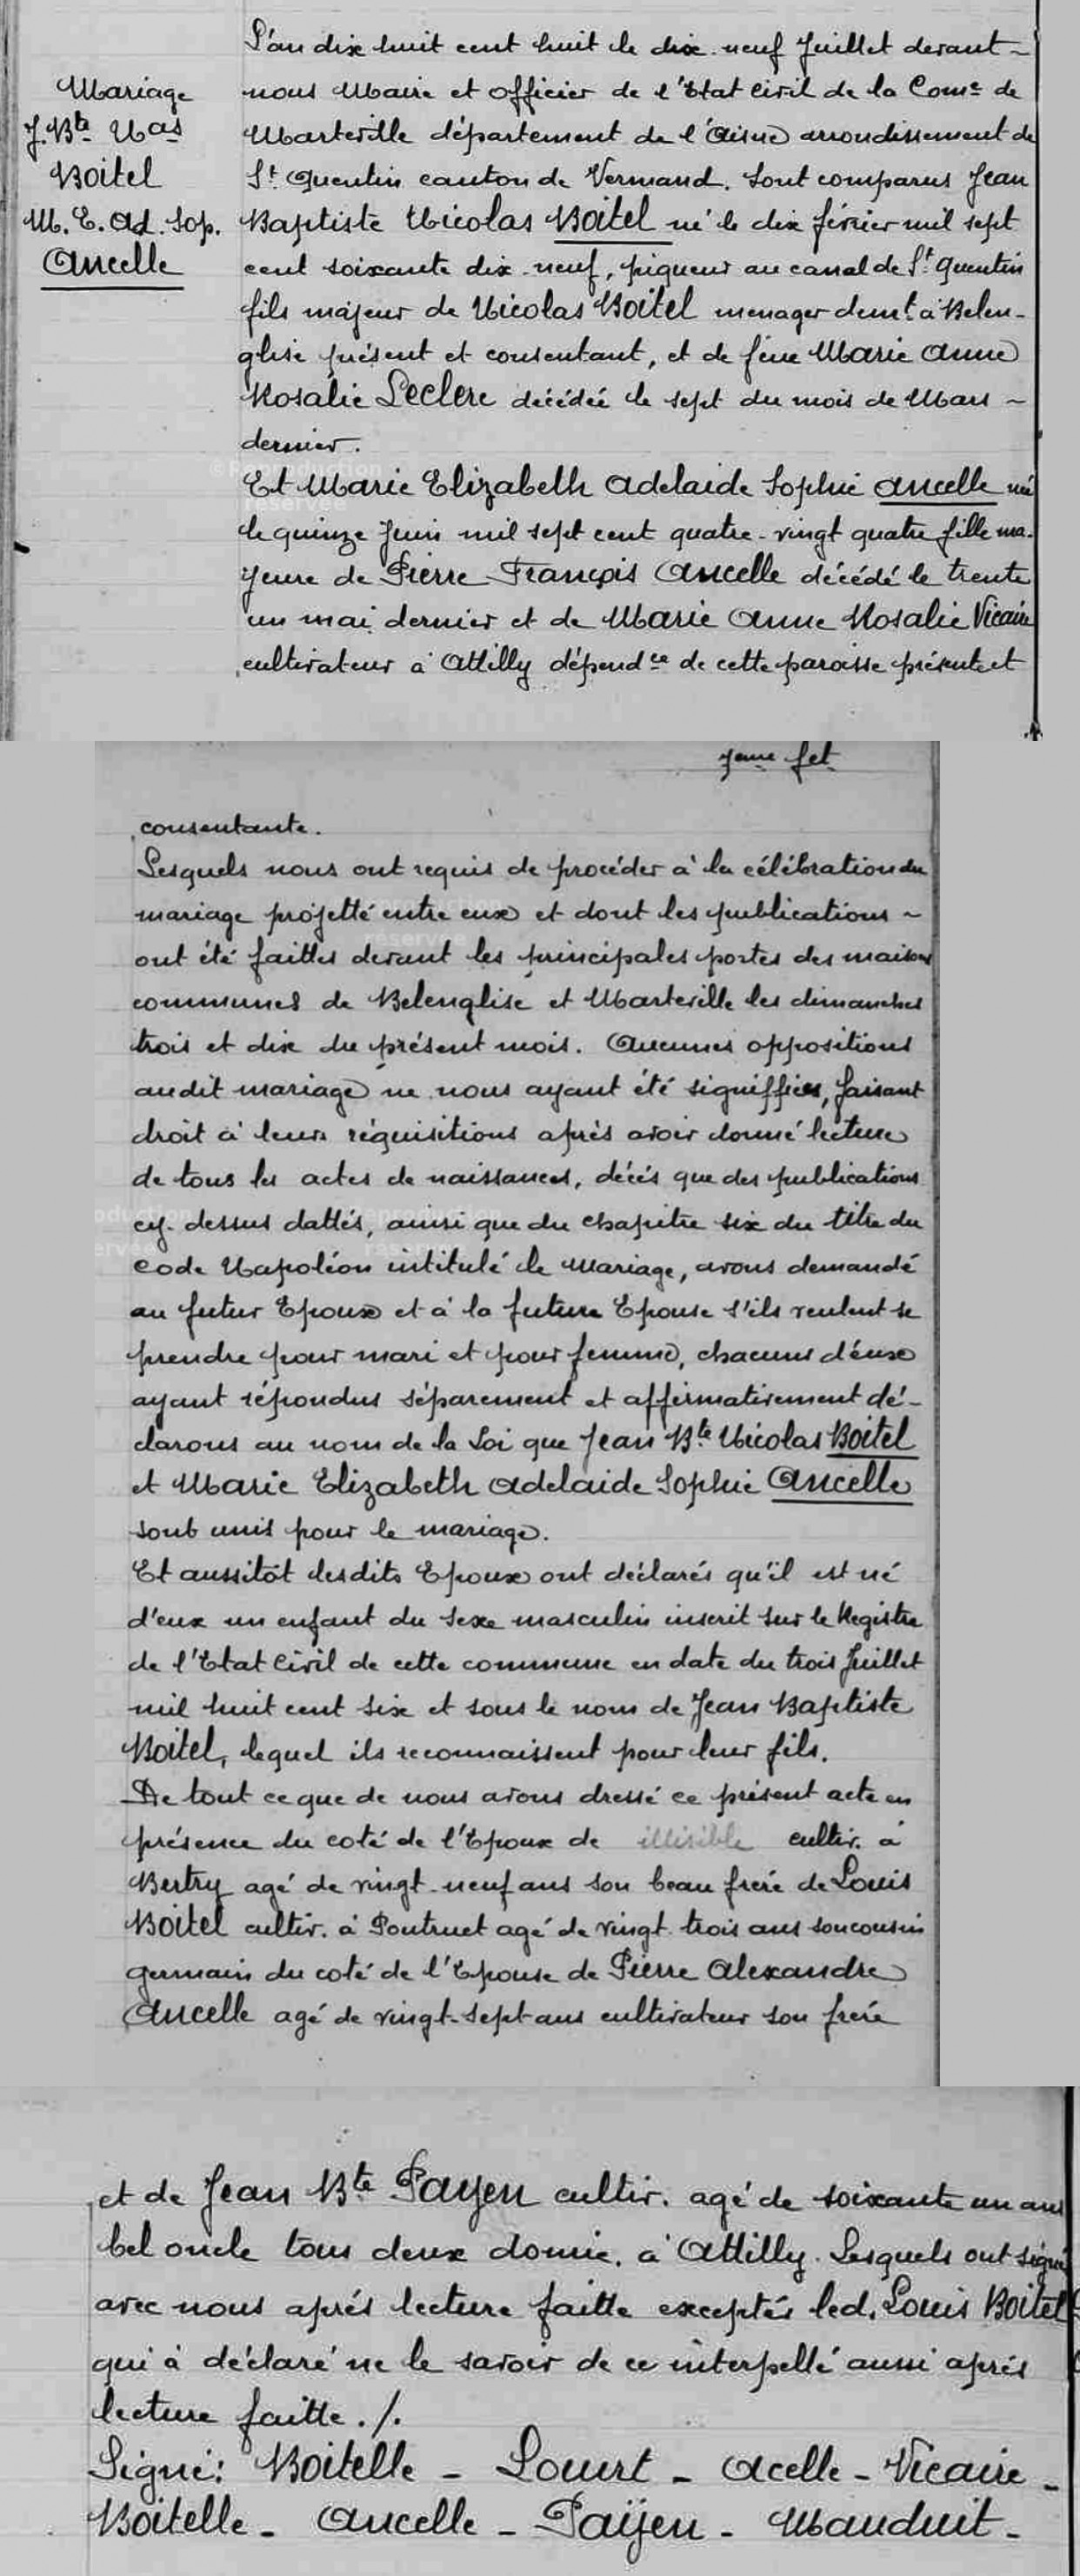 L'an dix huit cent huit le dix-neuf Juillet devant ~
Mariage
J. Bte Nas
Boitel
M. E. Ad. Sop.
Ancelle
nous Maire et officier de l'Etat Civil de la Come de
Marteville département de l'Aisne arrondissement de
St Quentin canton de Vermand. Sont comparus Jean
Baptiste Nicolas Boitel né le dix février mil sept
cent soixante dix-neuf, piqueur au canal de St Quentin
fils majeur de Nicolas Boitel menager demt à Belen-
glise présent et consentant, et de féue Marie Anne
Rosalie Leclere décédée le sept du mois de Mars ~
dernier.
Et Marie Elizabeth Adelaide Sophie Ancelle née
le quinze Juin mil sept cent quatre-vingt quatre fille ma-
jeure de Pierre François Ancelle décédé le trente
un mai dernier et de Marie Anne Rosalie Vicaire
cultivateur à Attilly dépendce de cette paroisse présente et
7eme fet
consentante.
Lesquels nous ont requis de procéder à la célébration du
mariage projetté entre eux et dont les publications ~
ont été faittes devant les principales portes des maisons
communes de Belenglise et Marteville les dimanches
trois et dix du présent mois. Aucunes oppositions
audit mariage ne nous ayant été signiffiées, faisant
droit à leurs réquisitions après avoir donné lecture
de tous les actes de naissances, décés que des publications
cy-dessus dattés, ainsi que du chapitre six du titre du
code Napoléon intitulé le Mariage, avons demandé
au futur Epoux et à la future Epouse s'ils veulent se
prendre pour mari et pour femme, chacuns d'eux
ayant répondus séparement et affirmativement dé-
clarons au nom de la Loi que Jean Bte Nicolas Boitel
et Marie Elizabeth Adelaide Sophie Ancelle
sont unis pour le mariage.
Et aussitôt lesdits Epoux ont déclarés qu'il est né
d'eux un enfant du sexe masculin inscrit sur le Registre
de l'Etat Civil de cette commune en date du trois Juillet
mil huit cent six et sous le nom de Jean Baptiste
Boitel, lequel ils reconnaissent pour leur fils.
De tout ce que de nous avons dressé ce présent acte en
présence du coté de l'Epoux de illisible cultiv. à
Bertry agé de vingt-neuf ans son beau frere de Louis
Boitel cultiv. à Pontruet agé de vingt trois ans son cousin
germain du coté de l'Epouse de Pierre Alexandre
Ancelle agé de vingt-sept ans cultivateur son frère
et de Jean Bte Payen cultiv. agé de soixante un ans
bel oncle tous deux domic. à Attilly. Lesquels ont signé
avec nous aprés lecture faitte exceptés led. Louis Boitel
qui à déclaré ne le savoir de ce interpellé aussi aprés
lecture faitte. /.
Signé: Boitelle - Louvrt - Acelle - Vicaire -
Boitelle - Ancelle - Païjen - Mauduit -